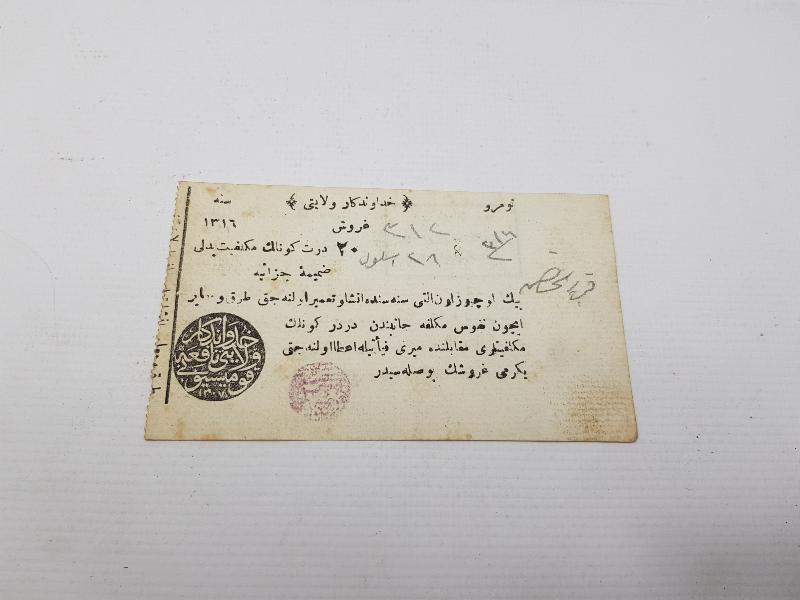 نومرو ﴿ خداوندكار ولايتى ﴾ سنه
١٣١٦
غروش
٢٠ درت كونلك مكلفيت بدلى
ضميمهٔ جزائيه
٣١٢
٢٨ ايلول
بيك اوچيوز اون التى سنه سنده انشا و تعمير اولنه جق طرق و معابر
ايچون نفوس مكلفه جانبندن دردر كونلك
مكلفيتلرى مقابلنده ميرى فيأتيله اعطا اولنه جق
يكرمى غروشك بوصله سيدر
خداوندكار
ولايتى نافعه
قوميسيونى
١٣٠٧